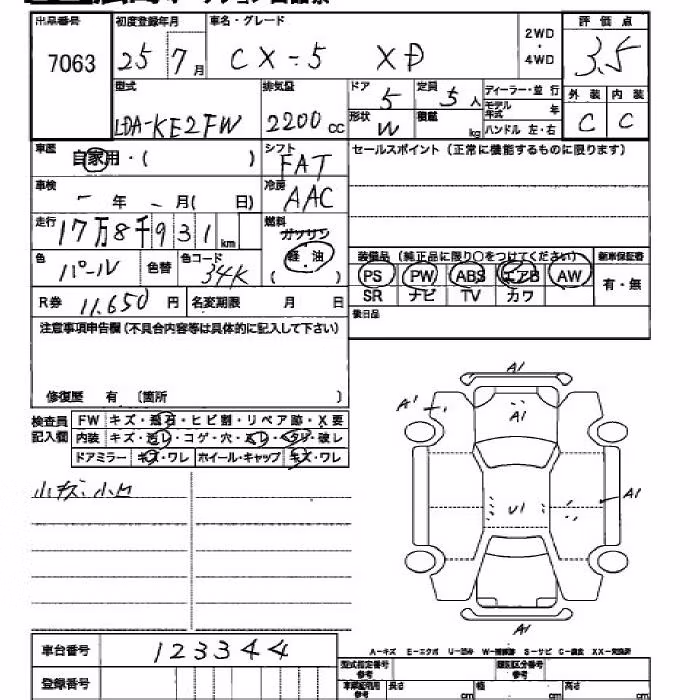 出品番号 初度登録年月 車名・グレード 2WD・4WD 評価点
7063 25 7月 CX-5 XD 3.5
型式 排気量 ドア 定員 ディーラー・並行 外装 内装
LDA-KE2FW 2200cc 5 5人 モデル年式 年 C C
形状 W 積載 kg ハンドル 左・右
車歴 自家用・( ) シフト FAT セールスポイント(正常に機能するものに限ります)
車検 - 年 - 月( 日) 冷房 AAC
走行 17万8千931km 燃料 ガソリン
軽・油
( )
色 パール 色替 色コード 34K
装備品(純正品に限り○をつけてください) 新車保証書
PS PW ABS エアB AW 有・無
SR ナビ TV カワ
R券 11,650円 名変期限 月 日
後日品
注意事項申告欄(不具合内容等は具体的に記入して下さい)
修復歴 有 〔箇所 〕
検査員記入欄 FW キズ・飛石・ヒビ割・リペア跡・X要
内装 キズ・汚レ・コゲ・穴・スレ・ヘタリ・破レ
ドアミラー キズ・ワレ ホイール・キャップ キズ・ワレ
小キズ、小凹
A1
A1
A1
U1
A1
A1
車台番号 123344
A-キズ E-エクボ U-凹み W-補修跡 S-サビ C-腐食 XX-交換済
登録番号
型式指定番号 参考 類別区分番号 参考
車庫証明用 参考 長さ cm 幅 cm 高さ cm